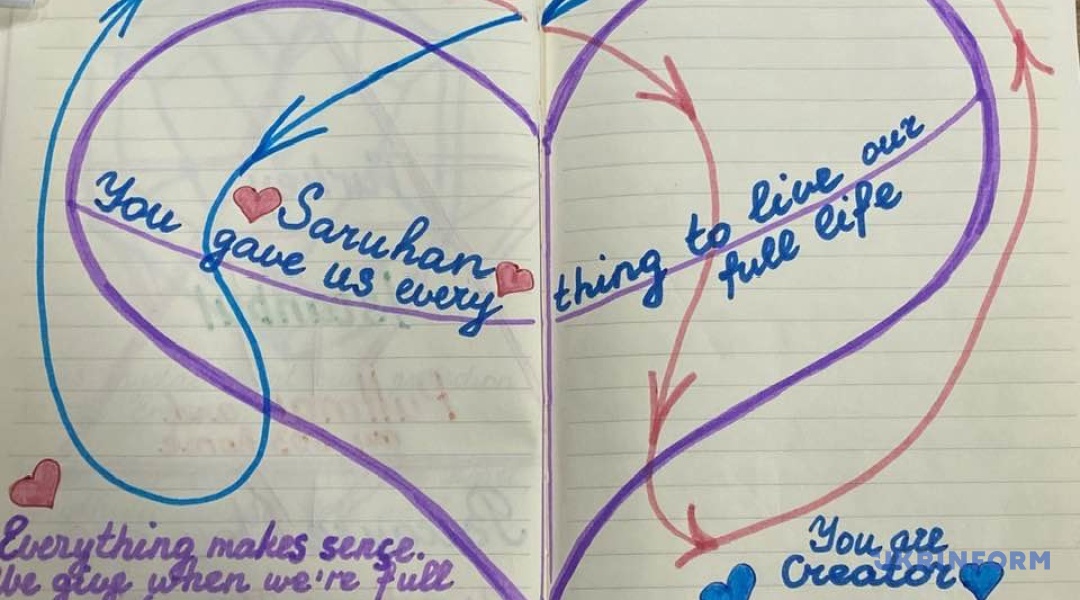 You ♥ Saruhan ♥
gave us every
thing to live our
full life
Everything makes sense.
We give when we're full
You are
Creator
UKRINFORM